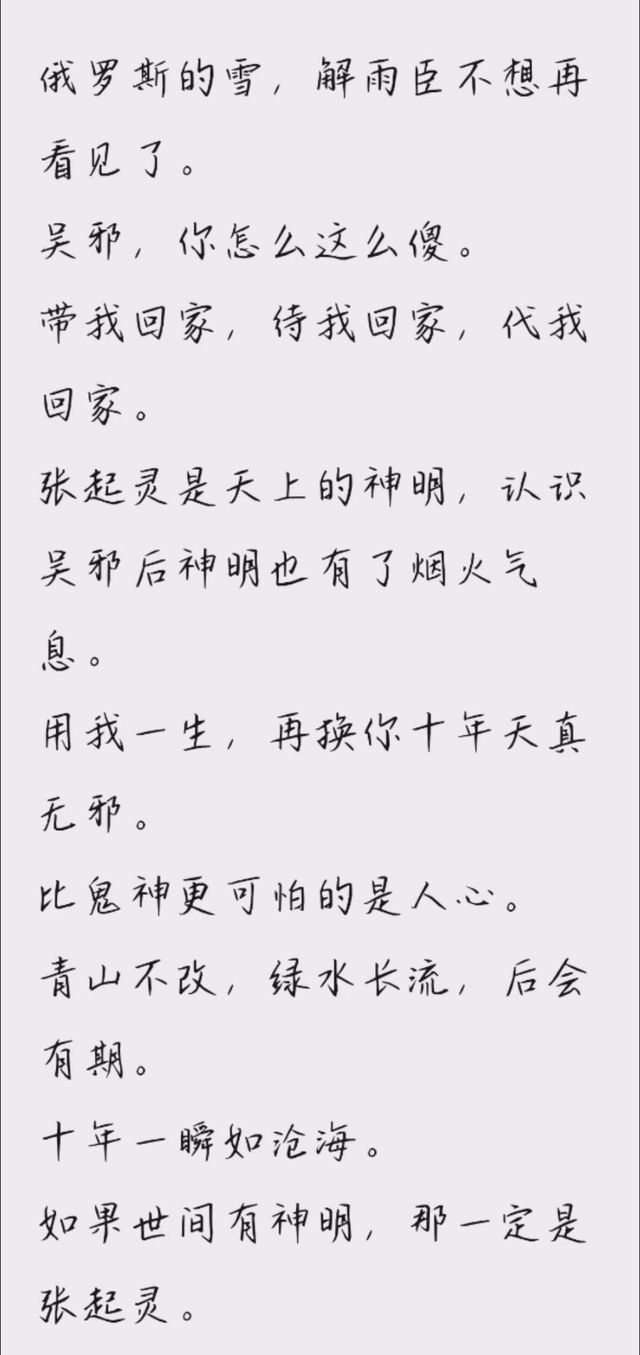 俄罗斯的雪，解雨臣不想再
看见了。
吴邪，你怎么这么傻。
带我回家，待我回家，代我
回家。
张起灵是天上的神明，认识
吴邪后神明也有了烟火气
息。
用我一生，再换你十年天真
无邪。
比鬼神更可怕的是人心。
青山不改，绿水长流，后会
有期。
十年一瞬如沧海。
如果世间有神明，那一定是
张起灵。